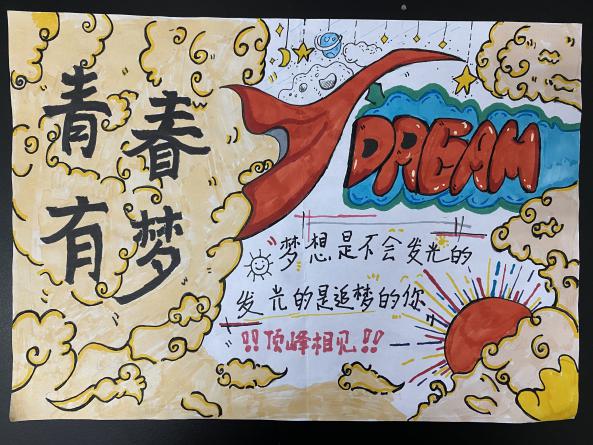 青春
有梦
DREAM
“梦想是不会发光的
发光的是追梦的你”
!!顶峰相见!!